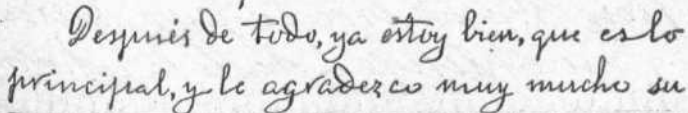 Después de todo, ya estoy bien, que es lo
principal, y le agradezco muy mucho su